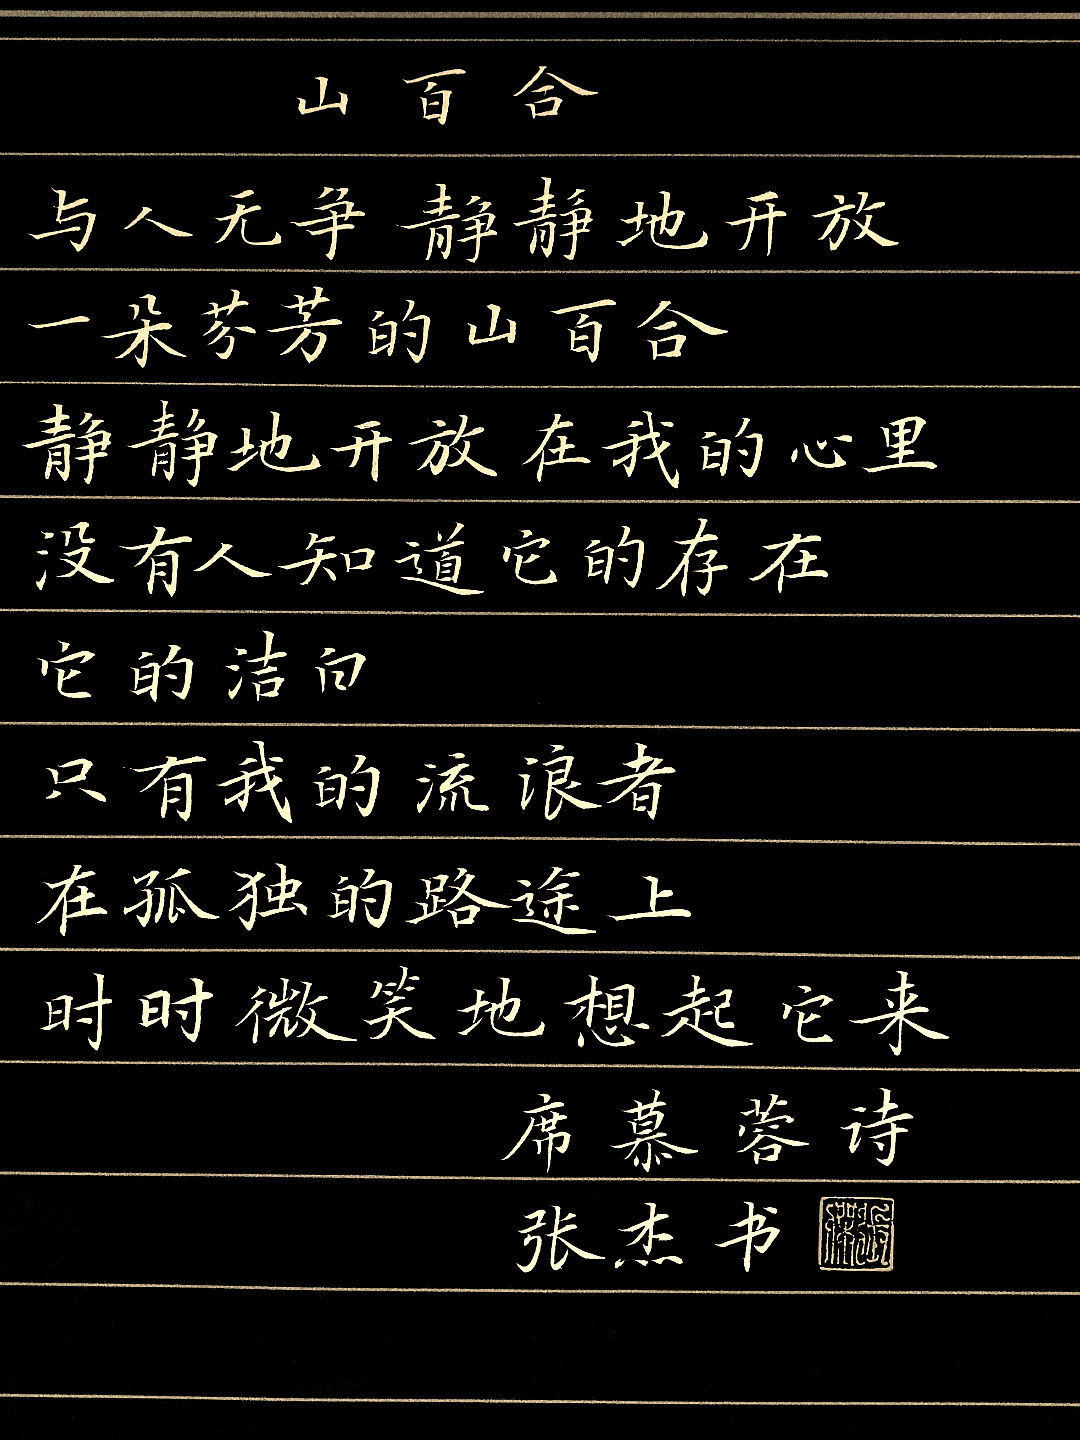 山百合
与人无争 静静地开放
一朵芬芳的山百合
静静地开放在我的心里
没有人知道它的存在
它的洁白
只有我的流浪者
在孤独的路途上
时时微笑地想起它来
席慕蓉诗
张杰书